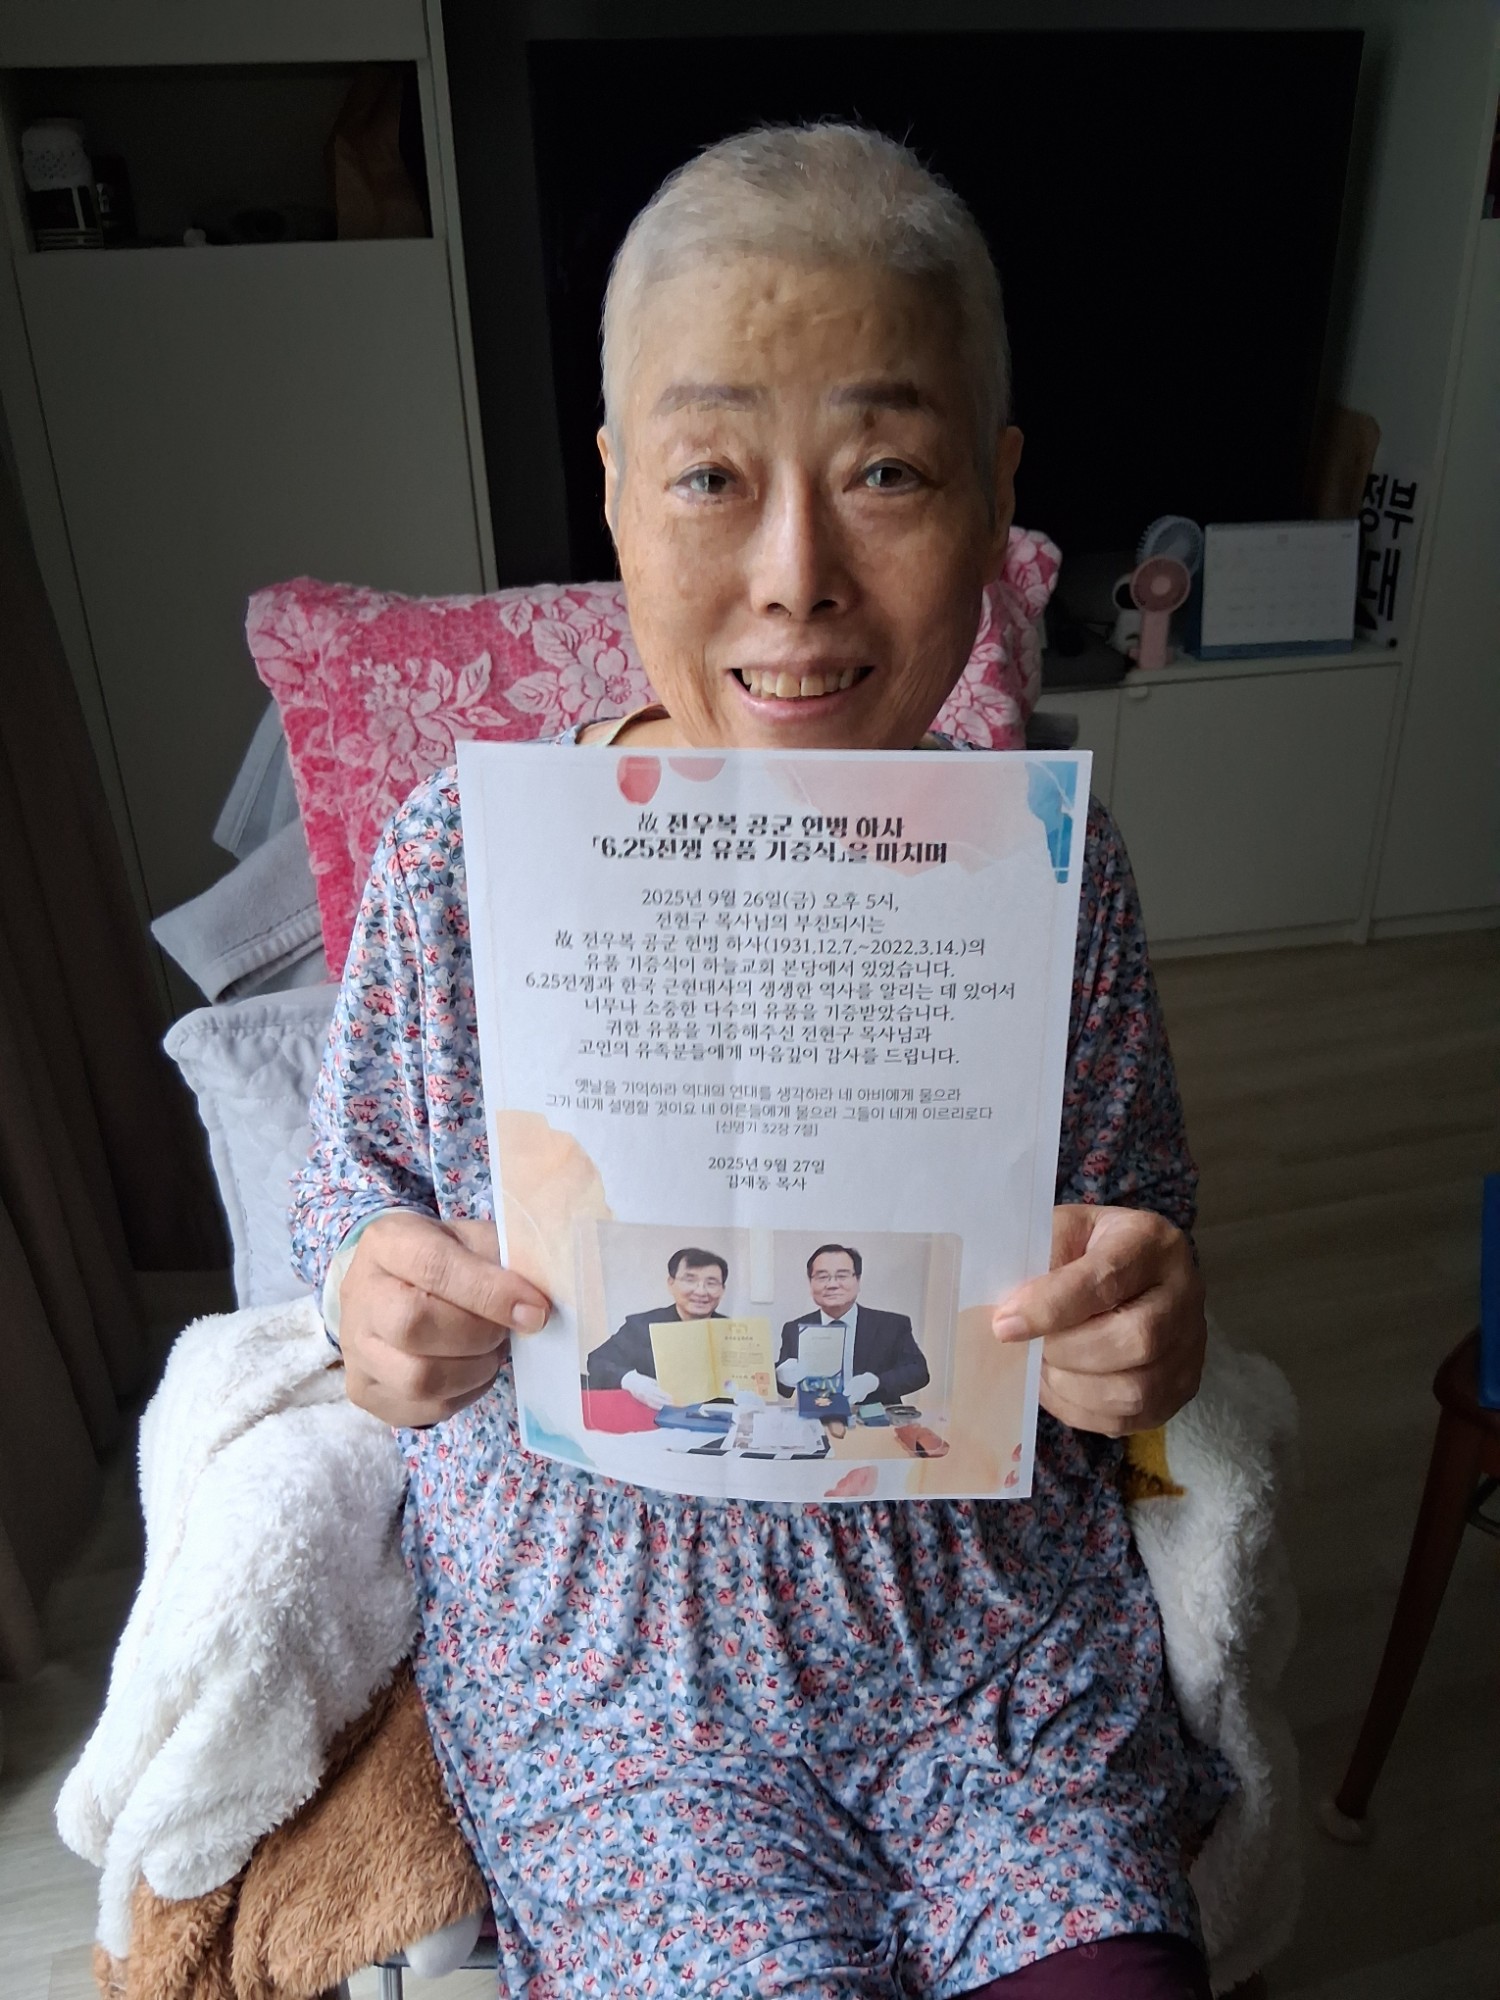 故 전우복 공군 헌병 하사
「6.25전쟁 유품 기증식」을 마치며
2025년 9월 26일(금) 오후 5시,
전현구 목사님의 부친되시는
故 전우복 공군 헌병 하사(1931.12.7.~2022.3.14.)의
유품 기증식이 하늘교회 본당에서 있었습니다.
6.25전쟁과 한국 근현대사의 생생한 역사를 알리는 데 있어서
너무나 소중한 다수의 유품을 기증받았습니다.
귀한 유품을 기증해주신 전현구 목사님과
고인의 유족분들에게 마음깊이 감사를 드립니다.
옛날을 기억하라 역대의 연대를 생각하라 네 아비에게 물으라
그가 네게 설명할 것이요 네 어른들에게 물으라 그들이 네게 이르리로다
[신명기 32장 7절]
2025년 9월 27일
김재동 목사
정부
대